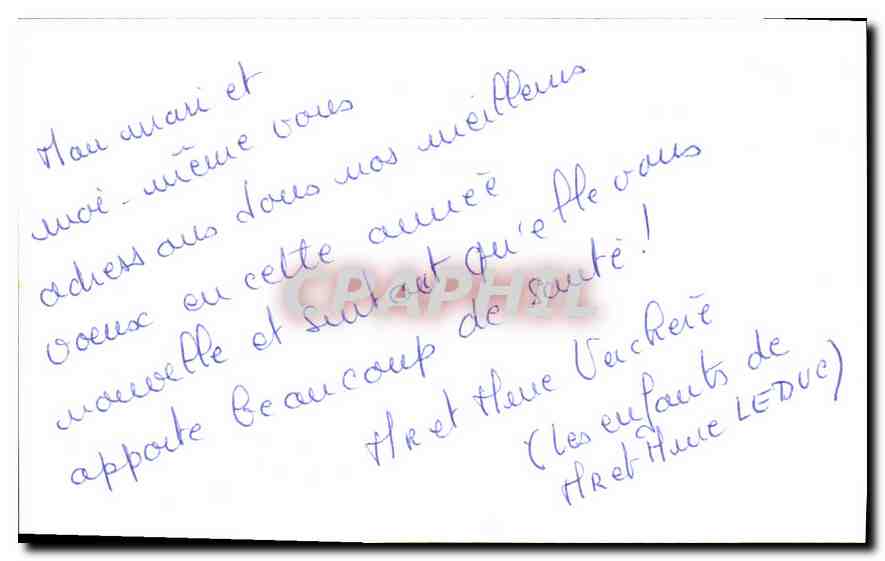 Mon mari et
moi-même vous
adressons tous nos meilleurs
voeux en cette année
nouvelle et surtout qu'elle vous
apporte beaucoup de santé !
MR et Mme
(les enfants de
MR et Mme LEDUC)
CPAPHIL